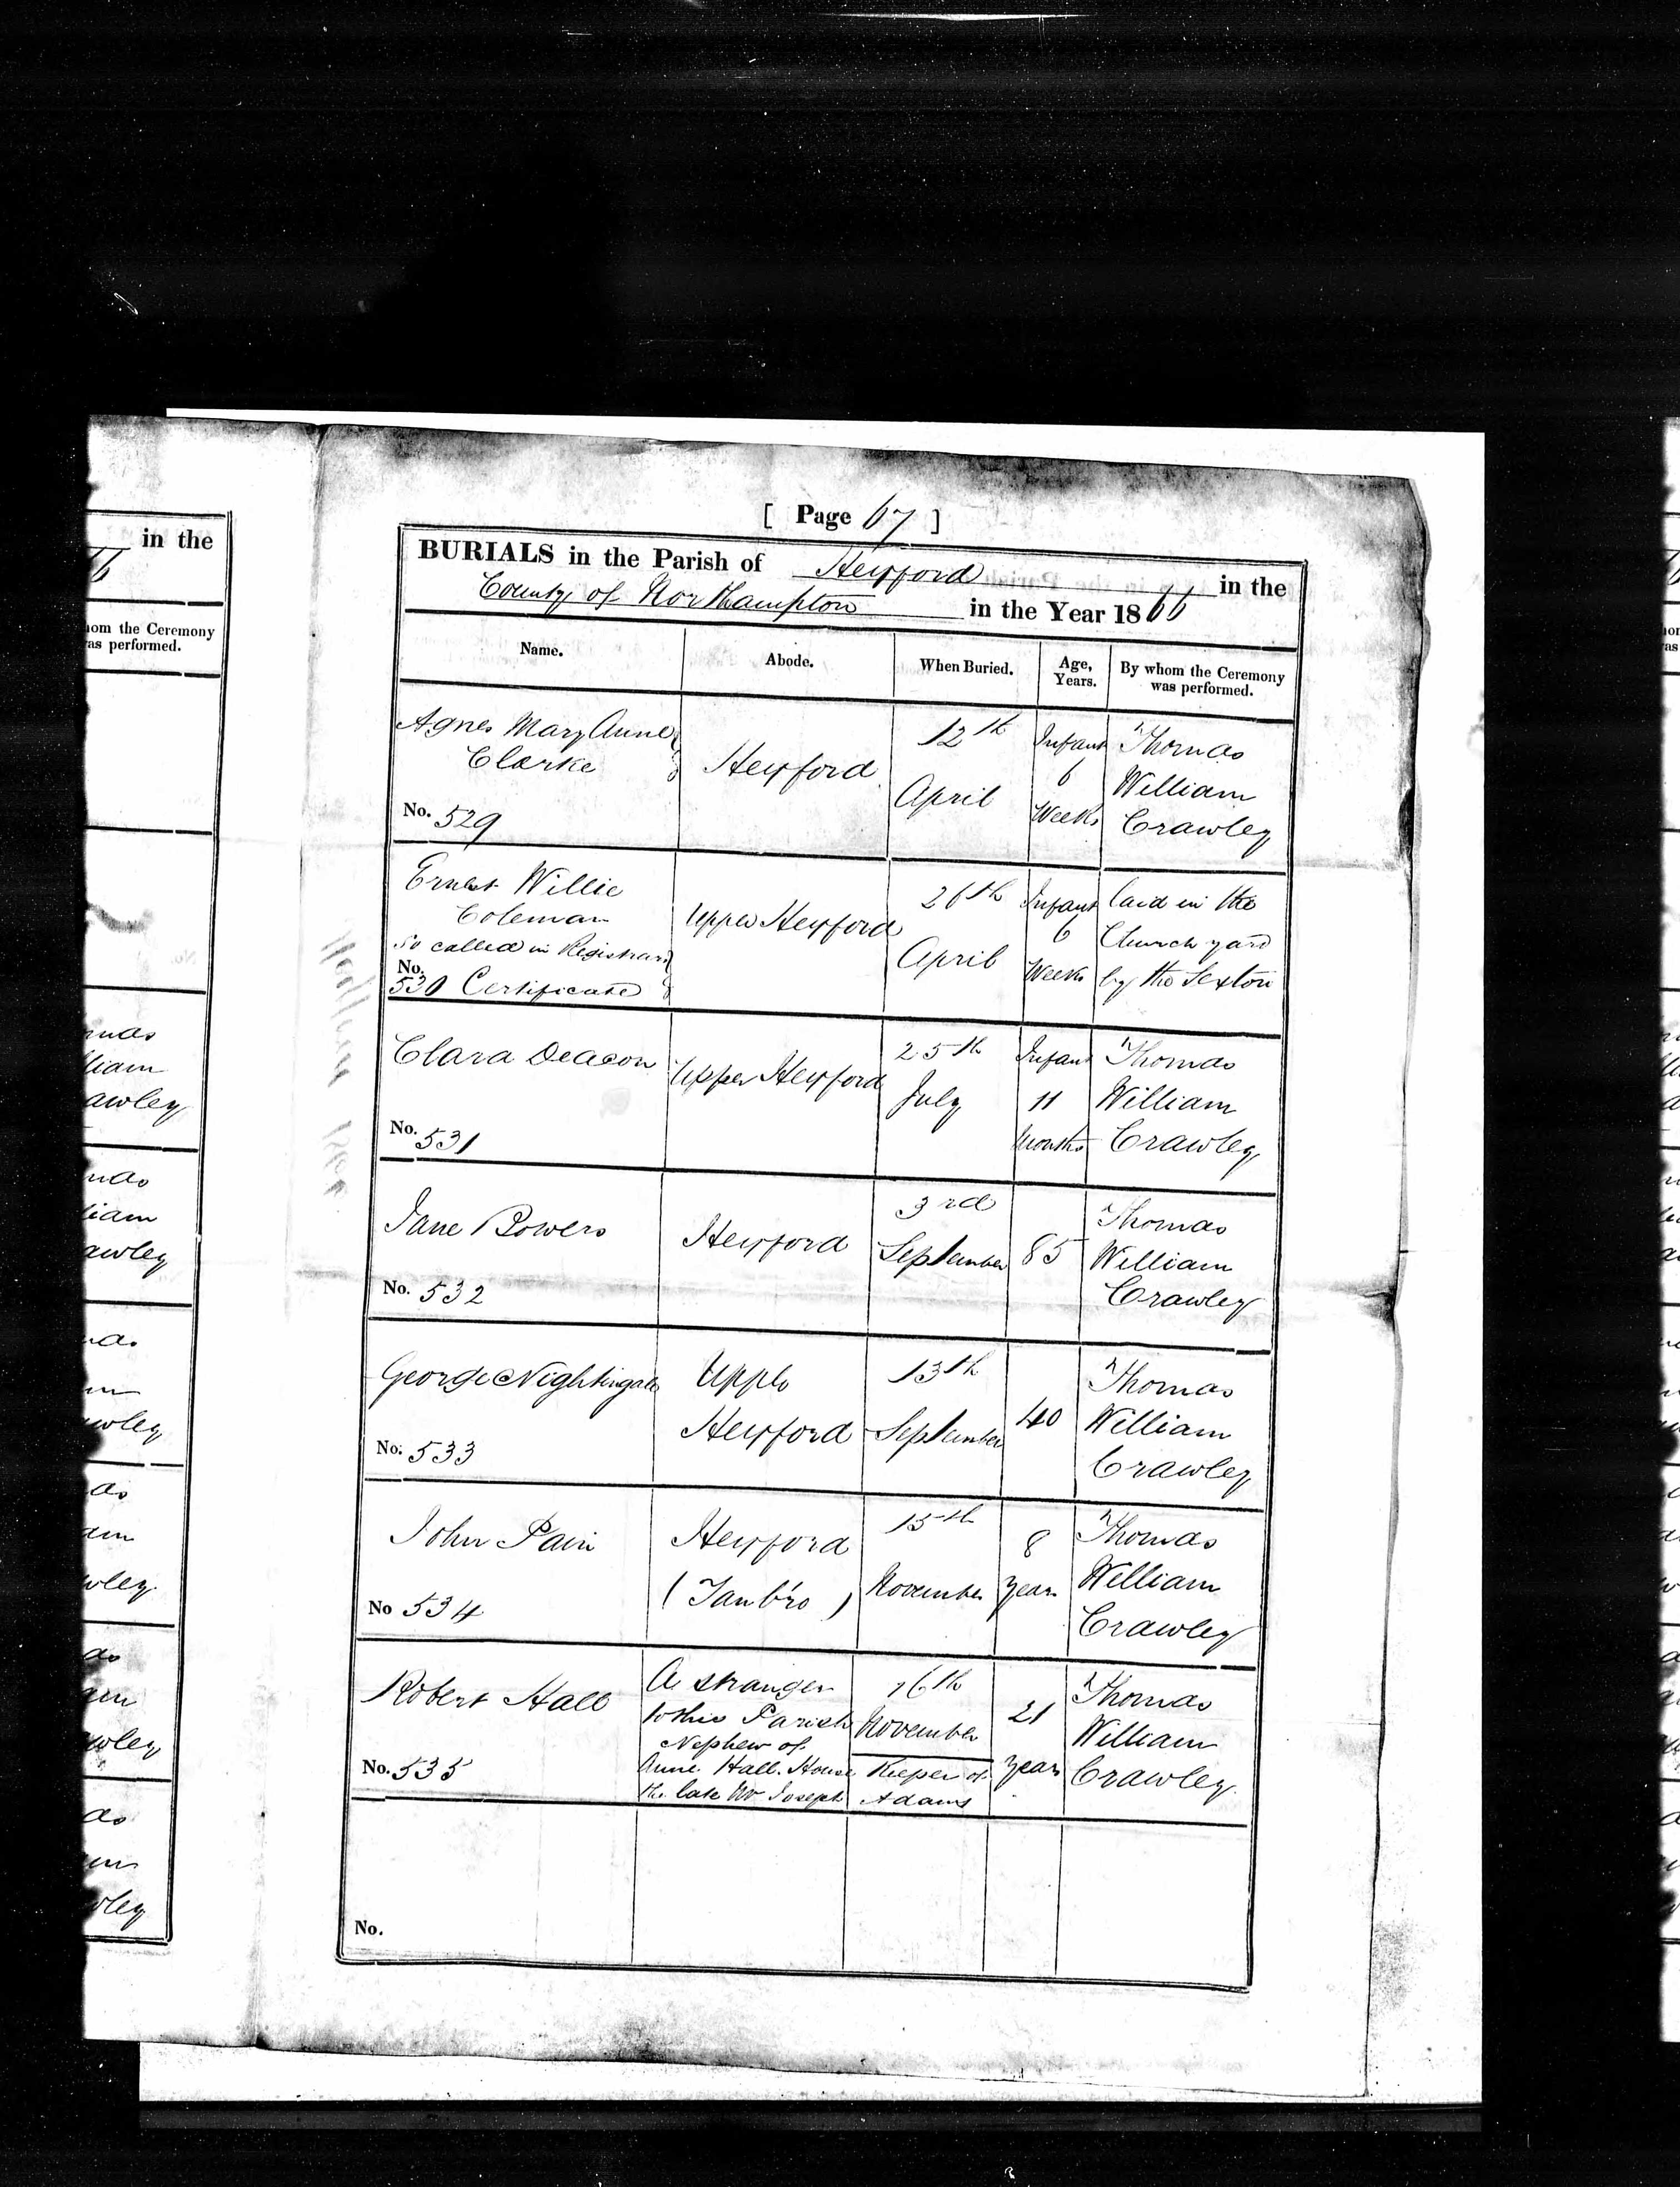 [ Page 67 ]
BURIALS in the Parish of Heyford in the
County of Northampton in the Year 1866
Name. Abode. When Buried. Age, Years. By whom the Ceremony was performed.
Agnes Mary Anne Clarke
No. 529
Heyford
12th April
Infant 6 Weeks
Thomas William Crawley
Ernest Willie Coleman
so called in Registrars
No. 530 Certificate
Upper Heyford
26th April
Infant 6 Weeks
laid in the Church yard by the Sexton
Clara Deacon
No. 531
Upper Heyford
25th July
Infant 11 Months
Thomas William Crawley
Jane Bowers
No. 532
Heyford
3rd September
85
Thomas William Crawley
George Nightingale
No. 533
Upper Heyford
13th September
40
Thomas William Crawley
John Pain
No 534
Heyford
15th November
8 years
Thomas William Crawley
Robert Hall
No. 535
A stranger
to this Parish
Nephew of
Anne Hall. House Keeper of
the late Mr Joseph Adams
16th November
21 years
Thomas William Crawley
No.
in the
hom the Ceremony
as performed.